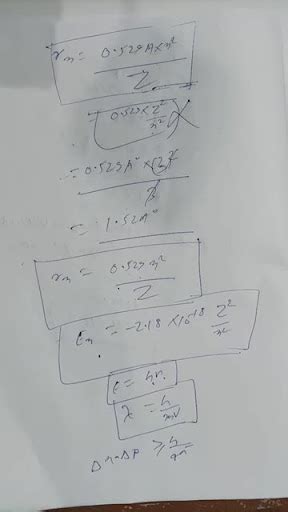 rn = 0.529A° × n² / Z
= 0.529 × Z² / n²
= 0.529A° × (3)² / 3
= 1.52A°
rn = 0.529 n² / Z
En = -2.18 × 10⁻¹⁸ Z² / n²
λ = h / mv